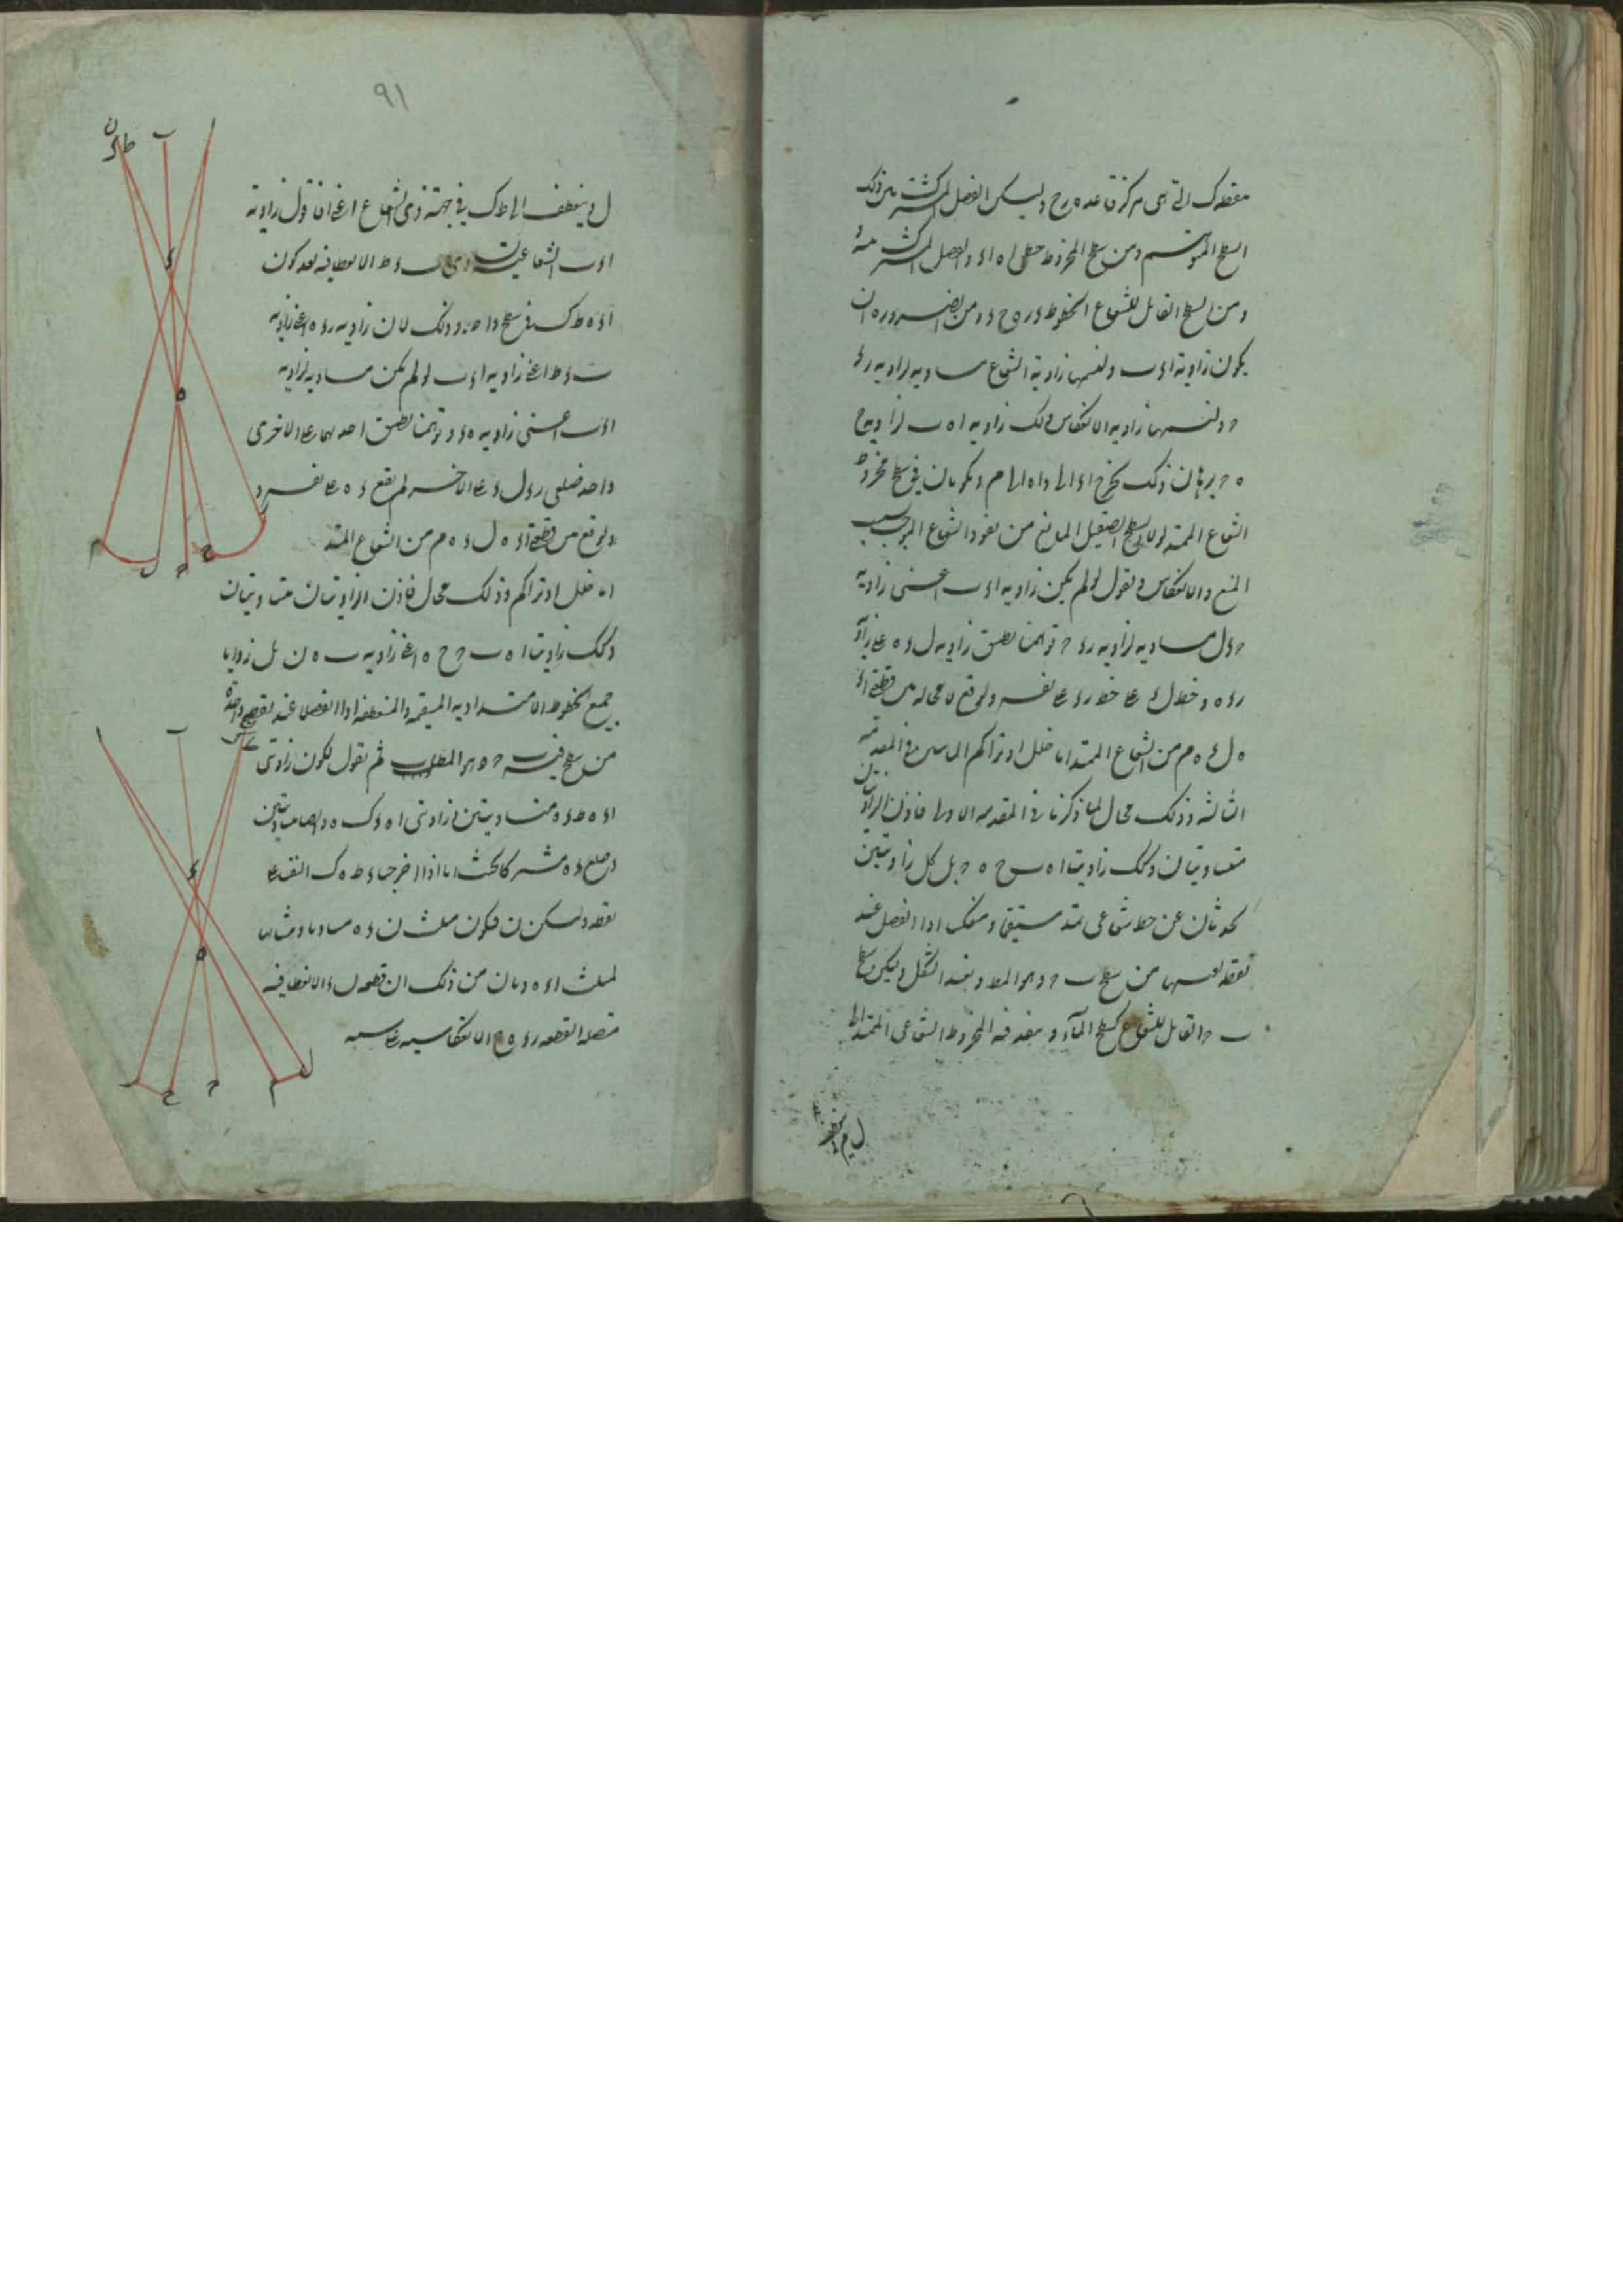 نقطة ك التى هى مركز قاعدة ه رح وليكن الفصل المشترك من ذلك
السطح المتوهم ومن سطح المخروط خطى ا ه ا ء والفصل المشترك منه
ومن السطح القابل للشعاع الخطوط ء ر ه ح ء ومن الضرورة ان
يكون زاوية ا ء ب ولنسمها زاوية الشعاع مساوية لزاوية ر ء
ح ولنسمها زاوية الانعكاس وكك زاوية ا ه ب لزاوية ح
ه ح برهان ذلك نخرج ا ء الى ل وا ه الى م ويكونان فى سطح مخروط
الشعاع الممتد لولا السطح الصقيل المانع من نفوذ الشعاع الموجب بسبب
المنع والانعكاس ونقول لو لم يكن زاوية ا ء ب اعنى زاوية
ح ء ل مساوية لزاوية ر ء ح توهمنا تطبيق زاوية ل ء ه على زاوية
ر ء ه وخط ل ء على خط ر ء على نفسه ولوقع لا محالة من قطعة ا ء
ه ل ء ه م من الشعاع الممتد اما خلل او تراكم الماس فى المقدمة
الثالثة وذلك محال لما ذكرنا فى المقدمة الاولى فاذن الزاويتان
متساويتان وكك زاويتا ا ه ب ح ه ح بل كل زاويتين
تحدثان عن خط شعاعى ممتد مستقيما ومنعكسا اذا انفصل عند
نقطة بعينها من سطح ب ح وهو المط وبهذا الشكل وليكن سطح
ب ح القابل للشعاع كسطح المآء و ينفذ فيه المخروط الشعاعى الممتد الى
ل م و ينعطف
٩١
ل م وينعطف الى ط ك فى جهة ذى الشعاع اعنى ا فاقول زاوية
ا ء ب الشعاعية ب ء ط الانعطافية بعد كون
ا ء ه ط ك فى سطح واحد وذلك لان زاوية ر ء ه اعنى زاوية
ب ء ط اعنى زاوية ا ء ب لو لم يكن مساوية لزاوية
ا ء ب اعنى زاوية ه ء ح وتوهمنا تطبيق احديهما على الاخرى
واحد ضلعى ر ء ل ء على الاخر لم يقع ء ه على نفسه و
لوقع من قطعة ا ء ه ل ء ه م من الشعاع الممتد
اما خلل او تراكم وذلك محال فاذن الزاويتان متساويتان
وكك زاويتا ا ه ب ح ح ه اعنى زاوية ب ه ن بل زوايا
جميع الخطوط الامتدادية المستقيمة والمنعطفة اذا انفصلا عند نقطة واحدة
من سطح فيه ب ح وهو المطلوب ثم نقول لكون زاويتى
ا ء ه ط ء ه متساويتين وزاويتى ا ه ء ك ه ء ايضا متساويتين
وضلع ء ه مشتركا بحيث اذا اخرجنا ء ط ه ك التقيا على
نقطة وليكن ن فيكون مثلث ن ء ه مساويا ومشابها
لمثلث ا ء ه وبان من ذلك ان قطعة ل ء الانعطافية
متصلة لقطعة ر ء ه ح الانعكاسية على نسبة
ا
ب
ن
ط
ك
ء
ه
م
ل
ح
ر
ا
ب
ء
ه
ر
ح
ح
م
ل